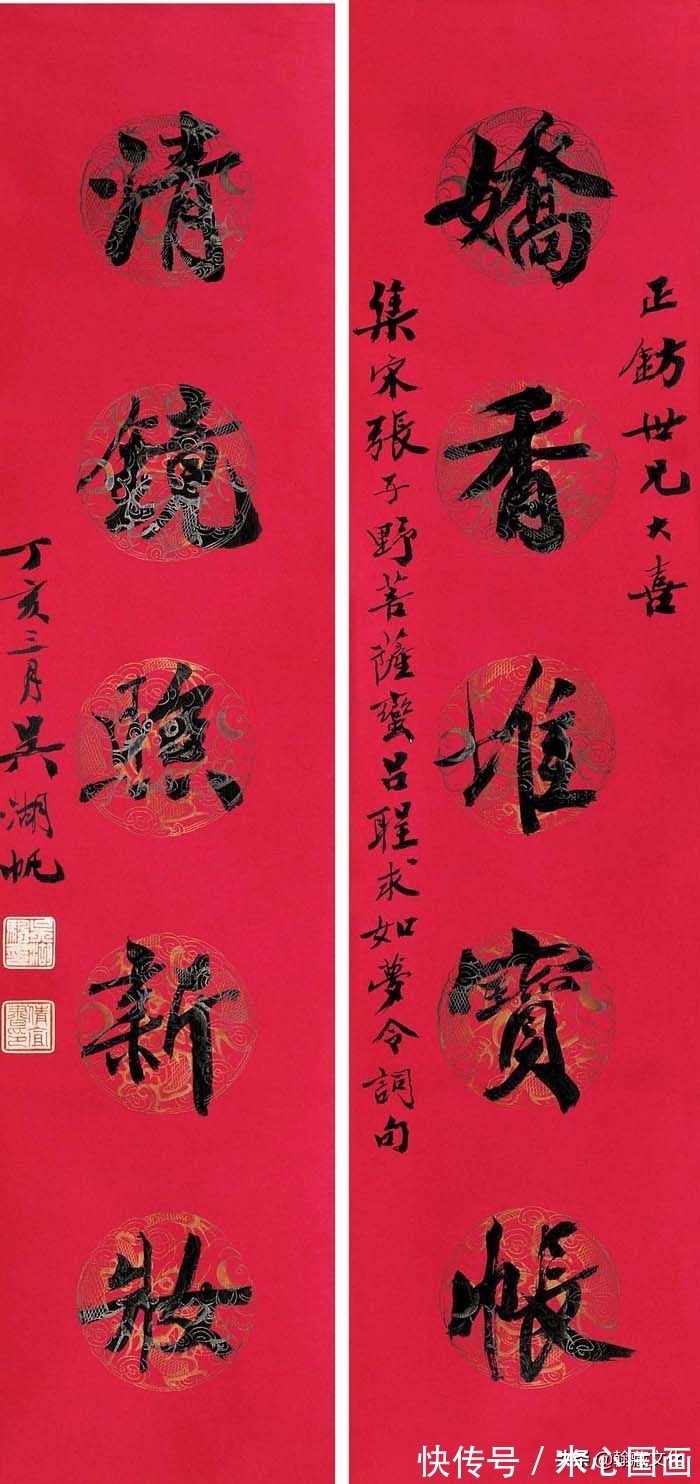 正鈁世兄大喜
嬌香堆寶帳
集宋張子野菩薩蠻呂聖求如夢令詞句
清鏡照新妝
丁亥三月吳湖帆
快传号/木心国画